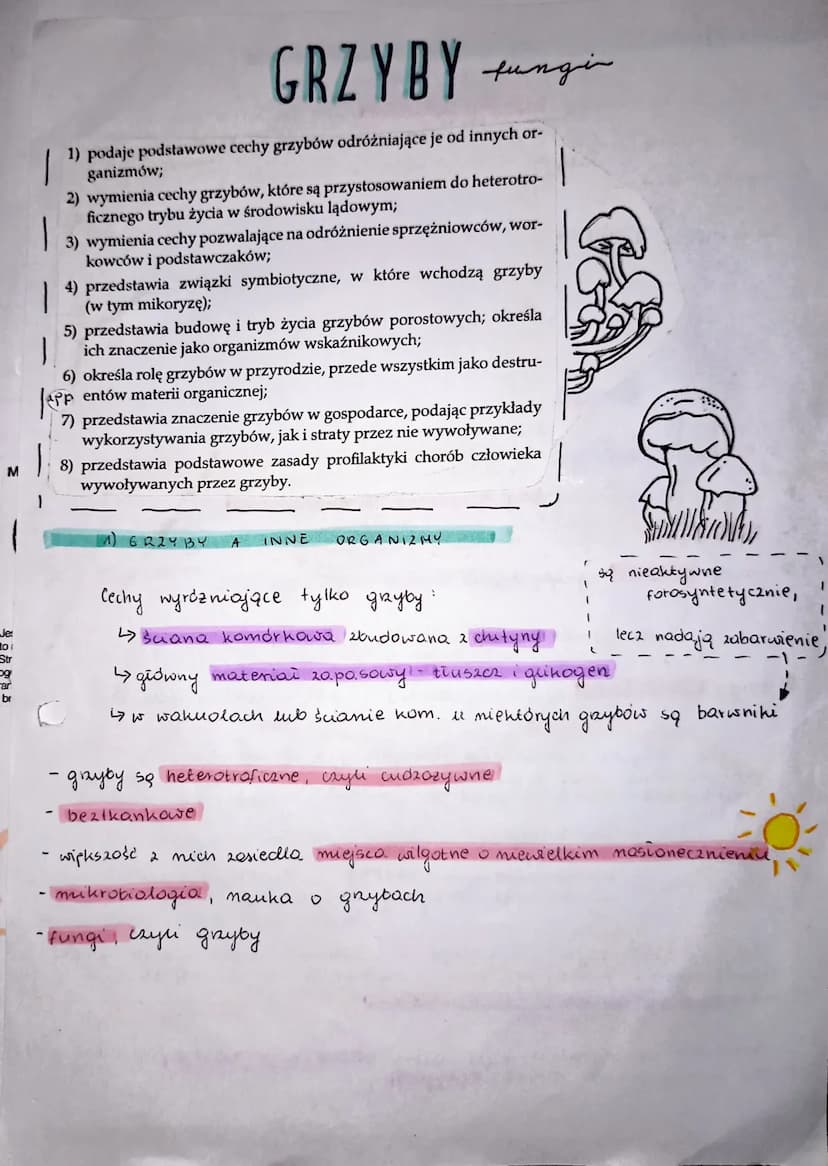 GRZYBY fungi
1) podaje podstawowe cechy grzybów odróżniające je od innych or-
ganizmów;
2) wymienia cechy grzybów, które są przystosowaniem do heterotro-
ficznego trybu życia w środowisku lądowym;
3) wymienia cechy pozwalające na odróżnienie sprzężniowców, wor-
kowców i podstawczaków;
4) przedstawia związki symbiotyczne, w które wchodzą grzyby
(w tym mikoryzę);
5) przedstawia budowę i tryb życia grzybów porostowych; określa
ich znaczenie jako organizmów wskaźnikowych;
6) określa rolę grzybów w przyrodzie, przede wszystkim jako destru-
entów materii organicznej;
7) przedstawia znaczenie grzybów w gospodarce, podając przykłady
wykorzystywania grzybów, jak i straty przez nie wywoływane;
8) przedstawia podstawowe zasady profilaktyki chorób człowieka
wywoływanych przez grzyby.
M
1) GRZYBY A INNE ORGANIZMY
są nieaktywne
forosyntetycznie,
lecz nadają zabarwienie
Cechy wyróżniające tylko grzyby:
↳ ściana komórkowa zbudowana z chityny
↳ główny materiał zapasowy - tłuszcz i glikogen
↳ w wakuolach lub ścianie kom. u niektórych grzybów są barwniki
- grzyby są heterotroficzne, czyli cudzożywne
- beztkankowe
- większość z nich zasiedla miejsca wilgotne o niewielkim nasłonecznieniu
- mikrobiologia, nauka o grzybach
- fungi, czyli grzyby